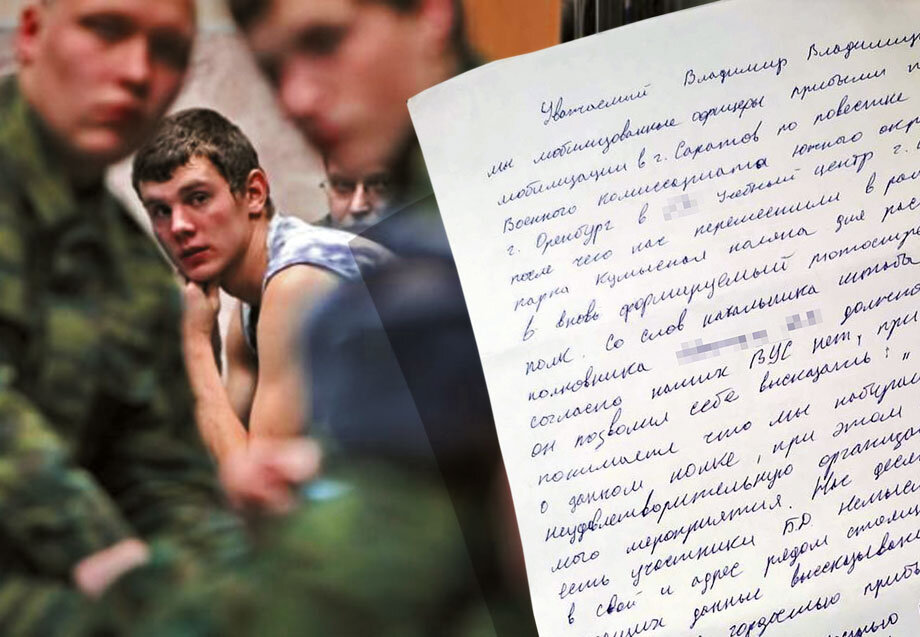 Уважаемый Владимир Владимир
мы мобилизованные офицеры прибыли п
мобилизации в г. Саратов по повестке
Военного комиссариата южного окр
г. Оренбург в Учебный центр г.
после чего нас переместили в рай
парка Кумысная поляна для рас
в вновь формируемый мотостре
полк. Со слов начальника штаба
полковника должно
согласно наших ВУС нет, при
он позволил себе высказать: „
понимаете что мы набирае
о данном полке, при этом
неудовлетворительную организа
мого мероприятия. Нас деся
есть участники Б.Д. Немысл
в свой и адрес рядом стоящ
данные высказывани
гордостью прибы